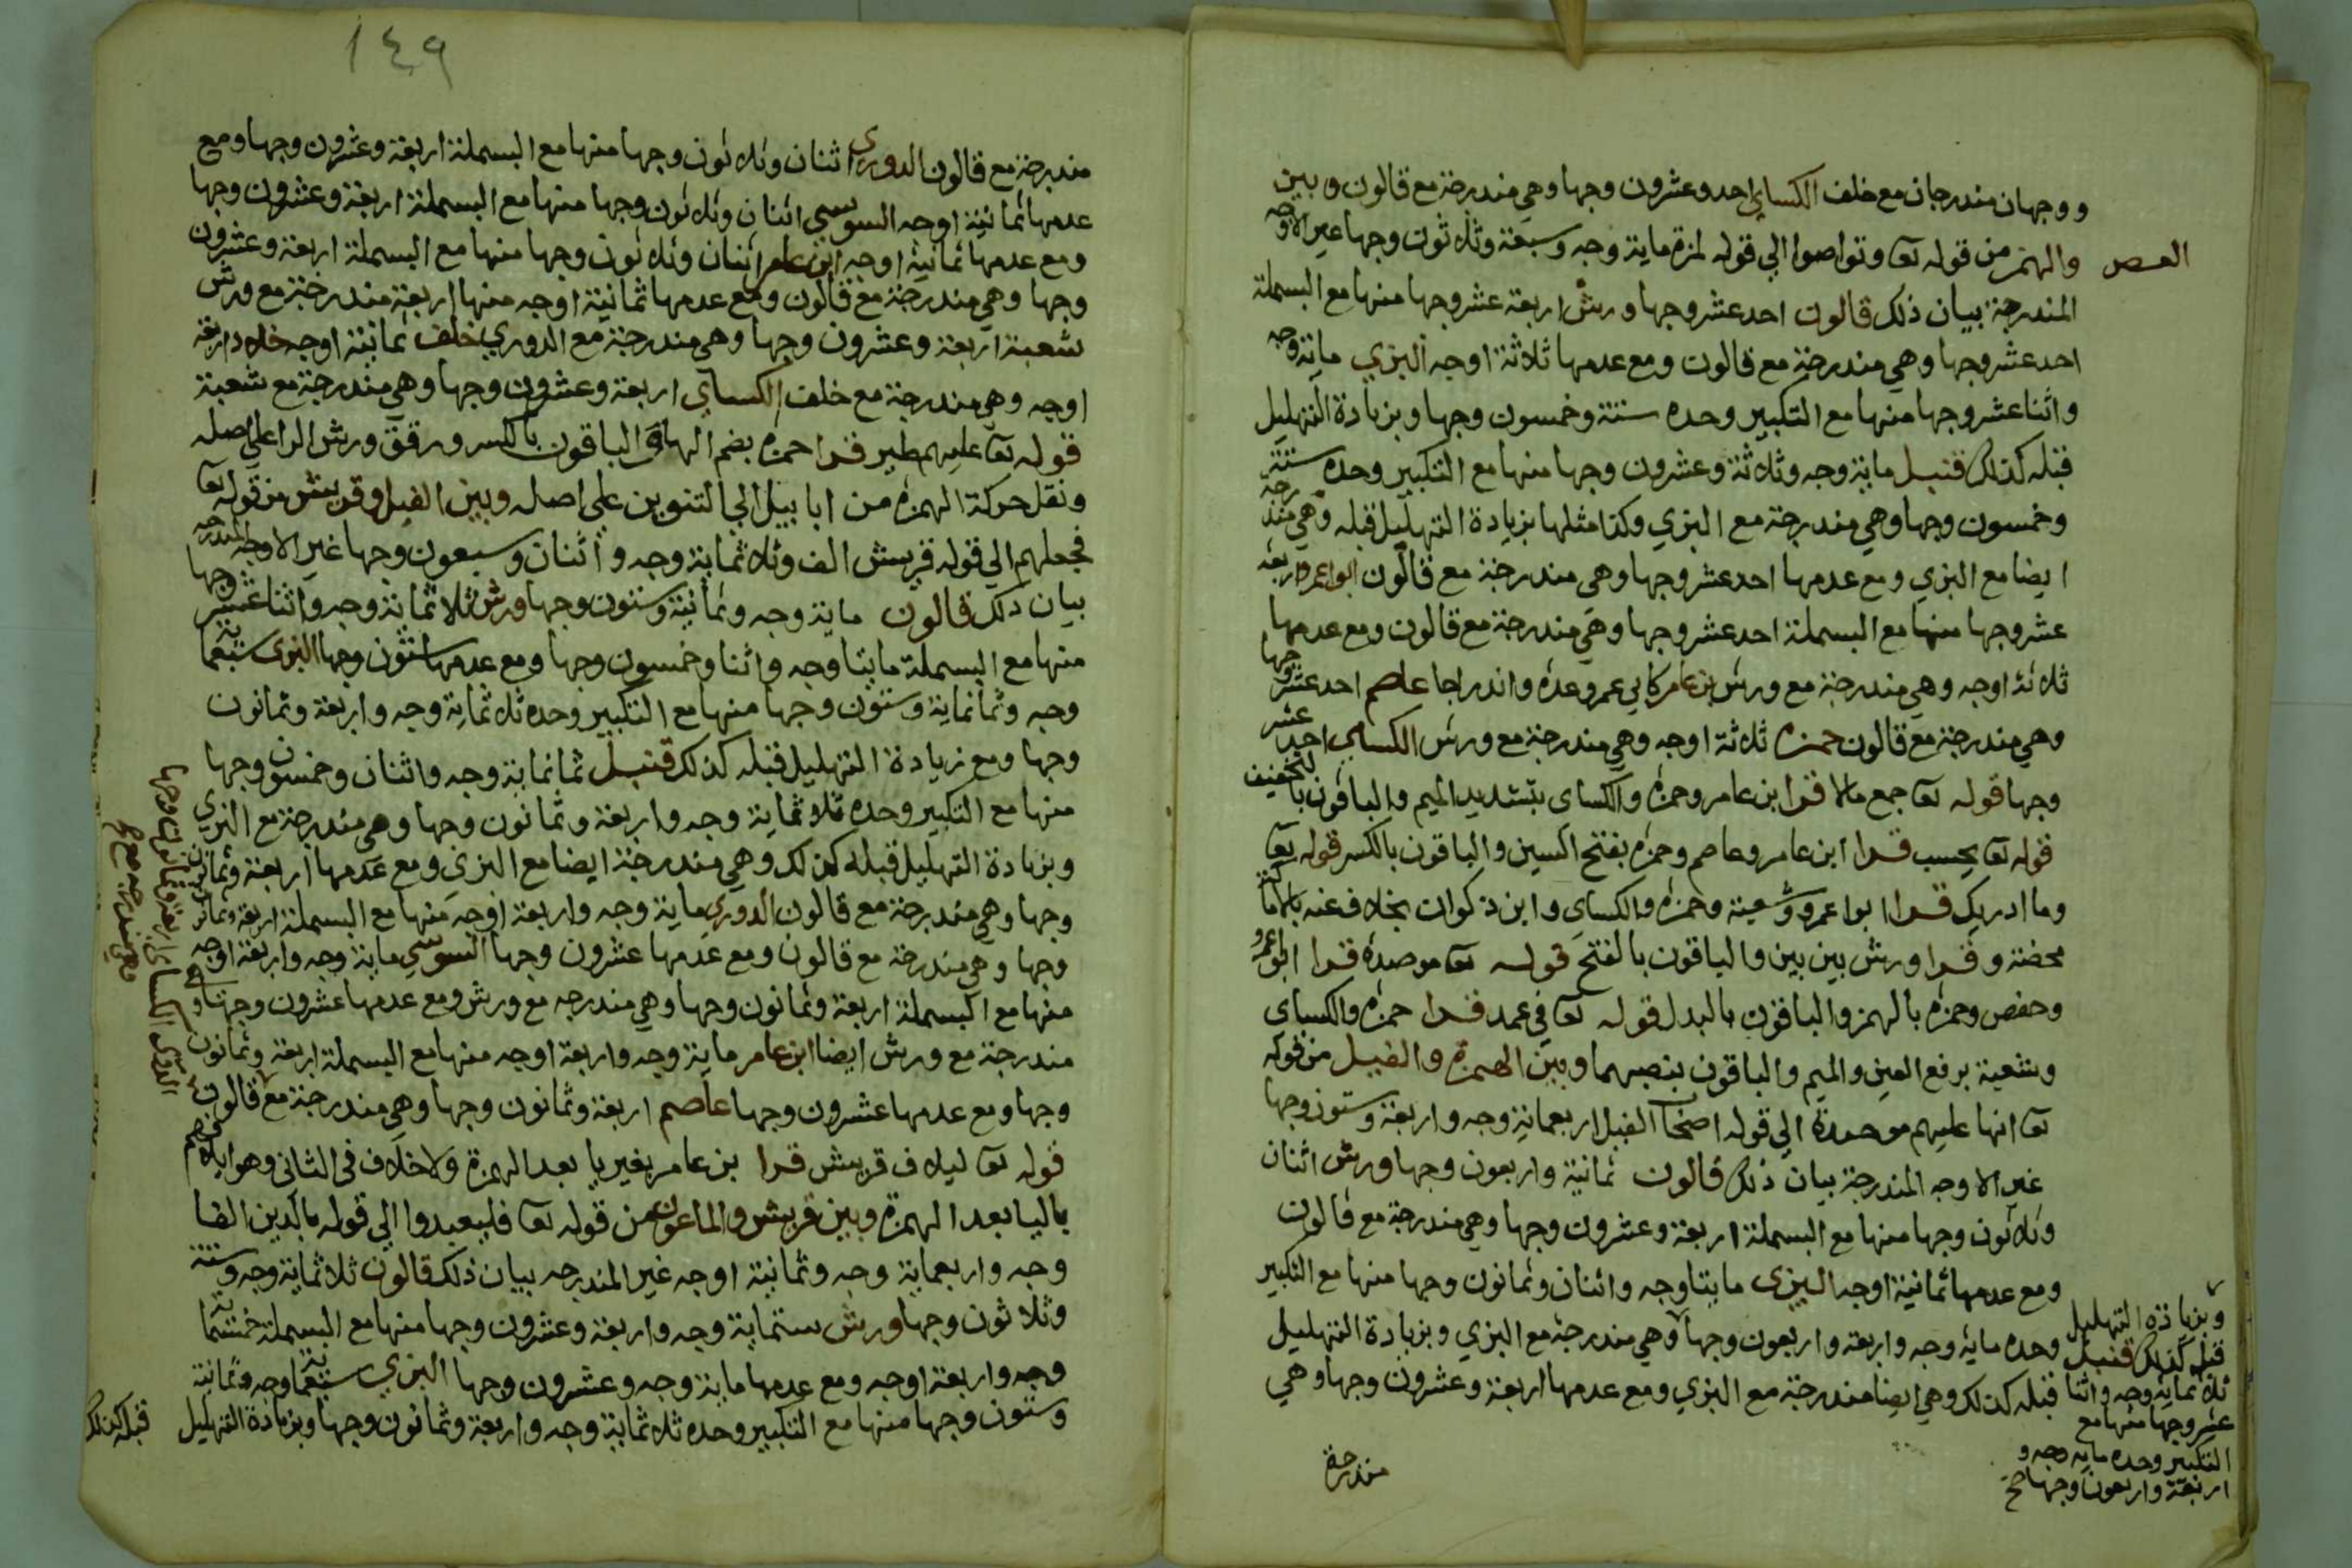 ووجهان مندرجان مع خلف الكساي احد وعشرون وجها وهي مندرجة مع قالون وبين
العصر
والهمز من قوله تعا وتواصوا الي قوله لمزة ماية وجه وسبعة وثلاثون وجها غير الاوجه
المندرجة بيان ذلك قالون احد عشر وجها ورش اربعة عشر وجها منها مع البسملة
احد عشر وجها وهي مندرجة مع قالون ومع عدمها ثلاثة اوجه البزي ماية وجه
واثنا عشر وجها منها مع التكبير وحده ستة وخمسون وجها وبزيادة التهليل
قبله كذلك قنبل ماية وجه وثلاثة وعشرون وجها منها مع التكبير وحده ستة
وخمسون وجها وهي مندرجة مع البزي وكذا مثلها بزيادة التهليل قبله وهي مندرجة
ايضا مع البزي ومع عدمها احد عشر وجها وهي مندرجة مع قالون ابوا عمرو اربعة
عشر وجها منها مع البسملة احد عشر وجها وهي مندرجة مع قالون ومع عدمها
ثلاثة اوجه وهي مندرجة مع ورش بن عامر كابي عمرو عدة واندراجا عاصم احد عشر وجها
وهي مندرجة مع قالون حمزة ثلاثة اوجه وهي مندرجة مع ورش الكساي احد عشر
وجها قوله تعا جمع مالا قرا ابن عامر وحمزة والكساي بتشديد الميم والباقون بالتخفيف
قوله تعا يحسب قرا ابن عامر وعاصم وحمزة بفتح السين والباقون بالكسر قوله تعا
وما ادريك قرا ابوا عمرو وشعبة وحمزة والكساي وابن ذكوان بخلاف عنه بالامالة
محضة وقرا ورش بين بين والباقون بالفتح قوله تعا موصدة قرا ابوا عمرو
وحفص وحمزة بالهمز والباقون بالبدل قوله تعا في عمد قرا حمزة والكساي
وشعبة برفع العين والميم والباقون بنصبهما وبين الهمزة والفيل من قوله
تعا انها عليهم موصدة الي قوله اصحاب الفيل اربعماية وجه واربعة وستون وجها
غير الاوجه المندرجة بيان ذلك قالون ثمانية واربعون وجها ورش اثنان
وثلاثون وجها منها مع البسملة اربعة وعشرون وجها وهي مندرجة مع قالون
ومع عدمها ثمانية اوجه البزي مايتا وجه واثنان وثمانون وجها منها مع التكبير
وحده ماية وجه واربعة واربعون وجها وهي مندرجة مع البزي وبزيادة التهليل
قبله كذلك وهي ايضا مندرجة مع البزي ومع عدمها اربعة وعشرون وجها وهي
وبزيادة التهليل
قبله كذلك قنبل
ثلاثماية وجه واثنا
عشر وجها منها مع
التكبير وحده ماية وجه و
اربعة واربعون وجها صح
مندرجة
١٤٩
مندرجة مع قالون الدوري اثنان وثلاثون وجها منها مع البسملة اربعة وعشرون وجها ومع
عدمها ثمانية اوجه السوسي اثنان وثلاثون وجها منها مع البسملة اربعة وعشرون وجها
ومع عدمها ثمانية اوجه ابن عامر اثنان وثلاثون وجها منها مع البسملة اربعة وعشرون
وجها وهي مندرجة مع قالون ومع عدمها ثمانية اوجه منها اربعة مندرجة مع ورش
شعبة اربعة وعشرون وجها وهي مندرجة مع الدوري خلف ثمانية اوجه خلاد اربعة
اوجه وهي مندرجة مع خلف الكساي اربعة وعشرون وجها وهي مندرجة مع شعبة
قوله تعا عليهم طير قرا حمزة بضم الها والباقون بالكسر ورقق ورش الرا علي اصله
ونقل حركة الهمزة من ابابيل الي التنوين علي اصله وبين الفيل وقريش من قوله تعا
فجعلهم الي قوله قريش الف وثلاثماية وجه واثنان وسبعون وجها غير الاوجه المندرجة
بيان ذلك قالون ماية وجه وثمانية وستون وجها ورش ثلاثماية وجه واثنا عشر وجها
منها مع البسملة مايتا وجه واثنا وخمسون وجها ومع عدمها ستون وجها البزي سبعماية
وجه وثمانماية وستون وجها منها مع التكبير وحده ثلاثماية وجه واربعة وثمانون
وجها ومع زيادة التهليل قبله كذلك قنبل ثمانماية وجه واثنان وخمسون وجها
منها مع التكبير وحده ثلاثماية وجه واربعة وثمانون وجها وهي مندرجة مع البزي
وبزيادة التهليل قبله كذلك وهي مندرجة ايضا مع البزي ومع عدمها اربعة وثمانون
وجها وهي مندرجة مع قالون الدوري ماية وجه واربعة اوجه منها مع البسملة اربعة وثمانون
وجها وهي مندرجة مع قالون ومع عدمها عشرون وجها السوسي ماية وجه واربعة اوجه
منها مع البسملة اربعة وثمانون وجها وهي مندرجه مع ورش ومع عدمها عشرون وجها وهي
مندرجة مع ورش ايضا ابن عامر ماية وجه واربعة اوجه منها مع البسملة اربعة وثمانون
وجها ومع عدمها عشرون وجها عاصم اربعة وثمانون وجها وهي مندرجة مع قالون
قوله تعا ليلاف قريش قرا بن عامر بغير يا بعد الهمزة ولا خلاف في الثاني وهو ايلافهم
باليا بعد الهمزة وبين قريش والماعون من قوله تعا فليعبدوا الي قوله بالدين الفا
وجه واربعماية وجه وثمانية اوجه غير المندرجه بيان ذلك قالون ثلاثماية وجه وستة
وثلاثون وجها ورش ستماية وجه واربعة وعشرون وجها منها مع البسملة خمسماية
وجه واربعة اوجه ومع عدمها ماية وجه وعشرون وجها البزي سبعماية وجه وثمانية
وستون وجها منها مع التكبير وحده ثلاثماية وجه واربعة وثمانون وجها وبزيادة التهليل
قبله كذلك
الكساي اربعة وثمانون وجها
وهي مندرجة مع